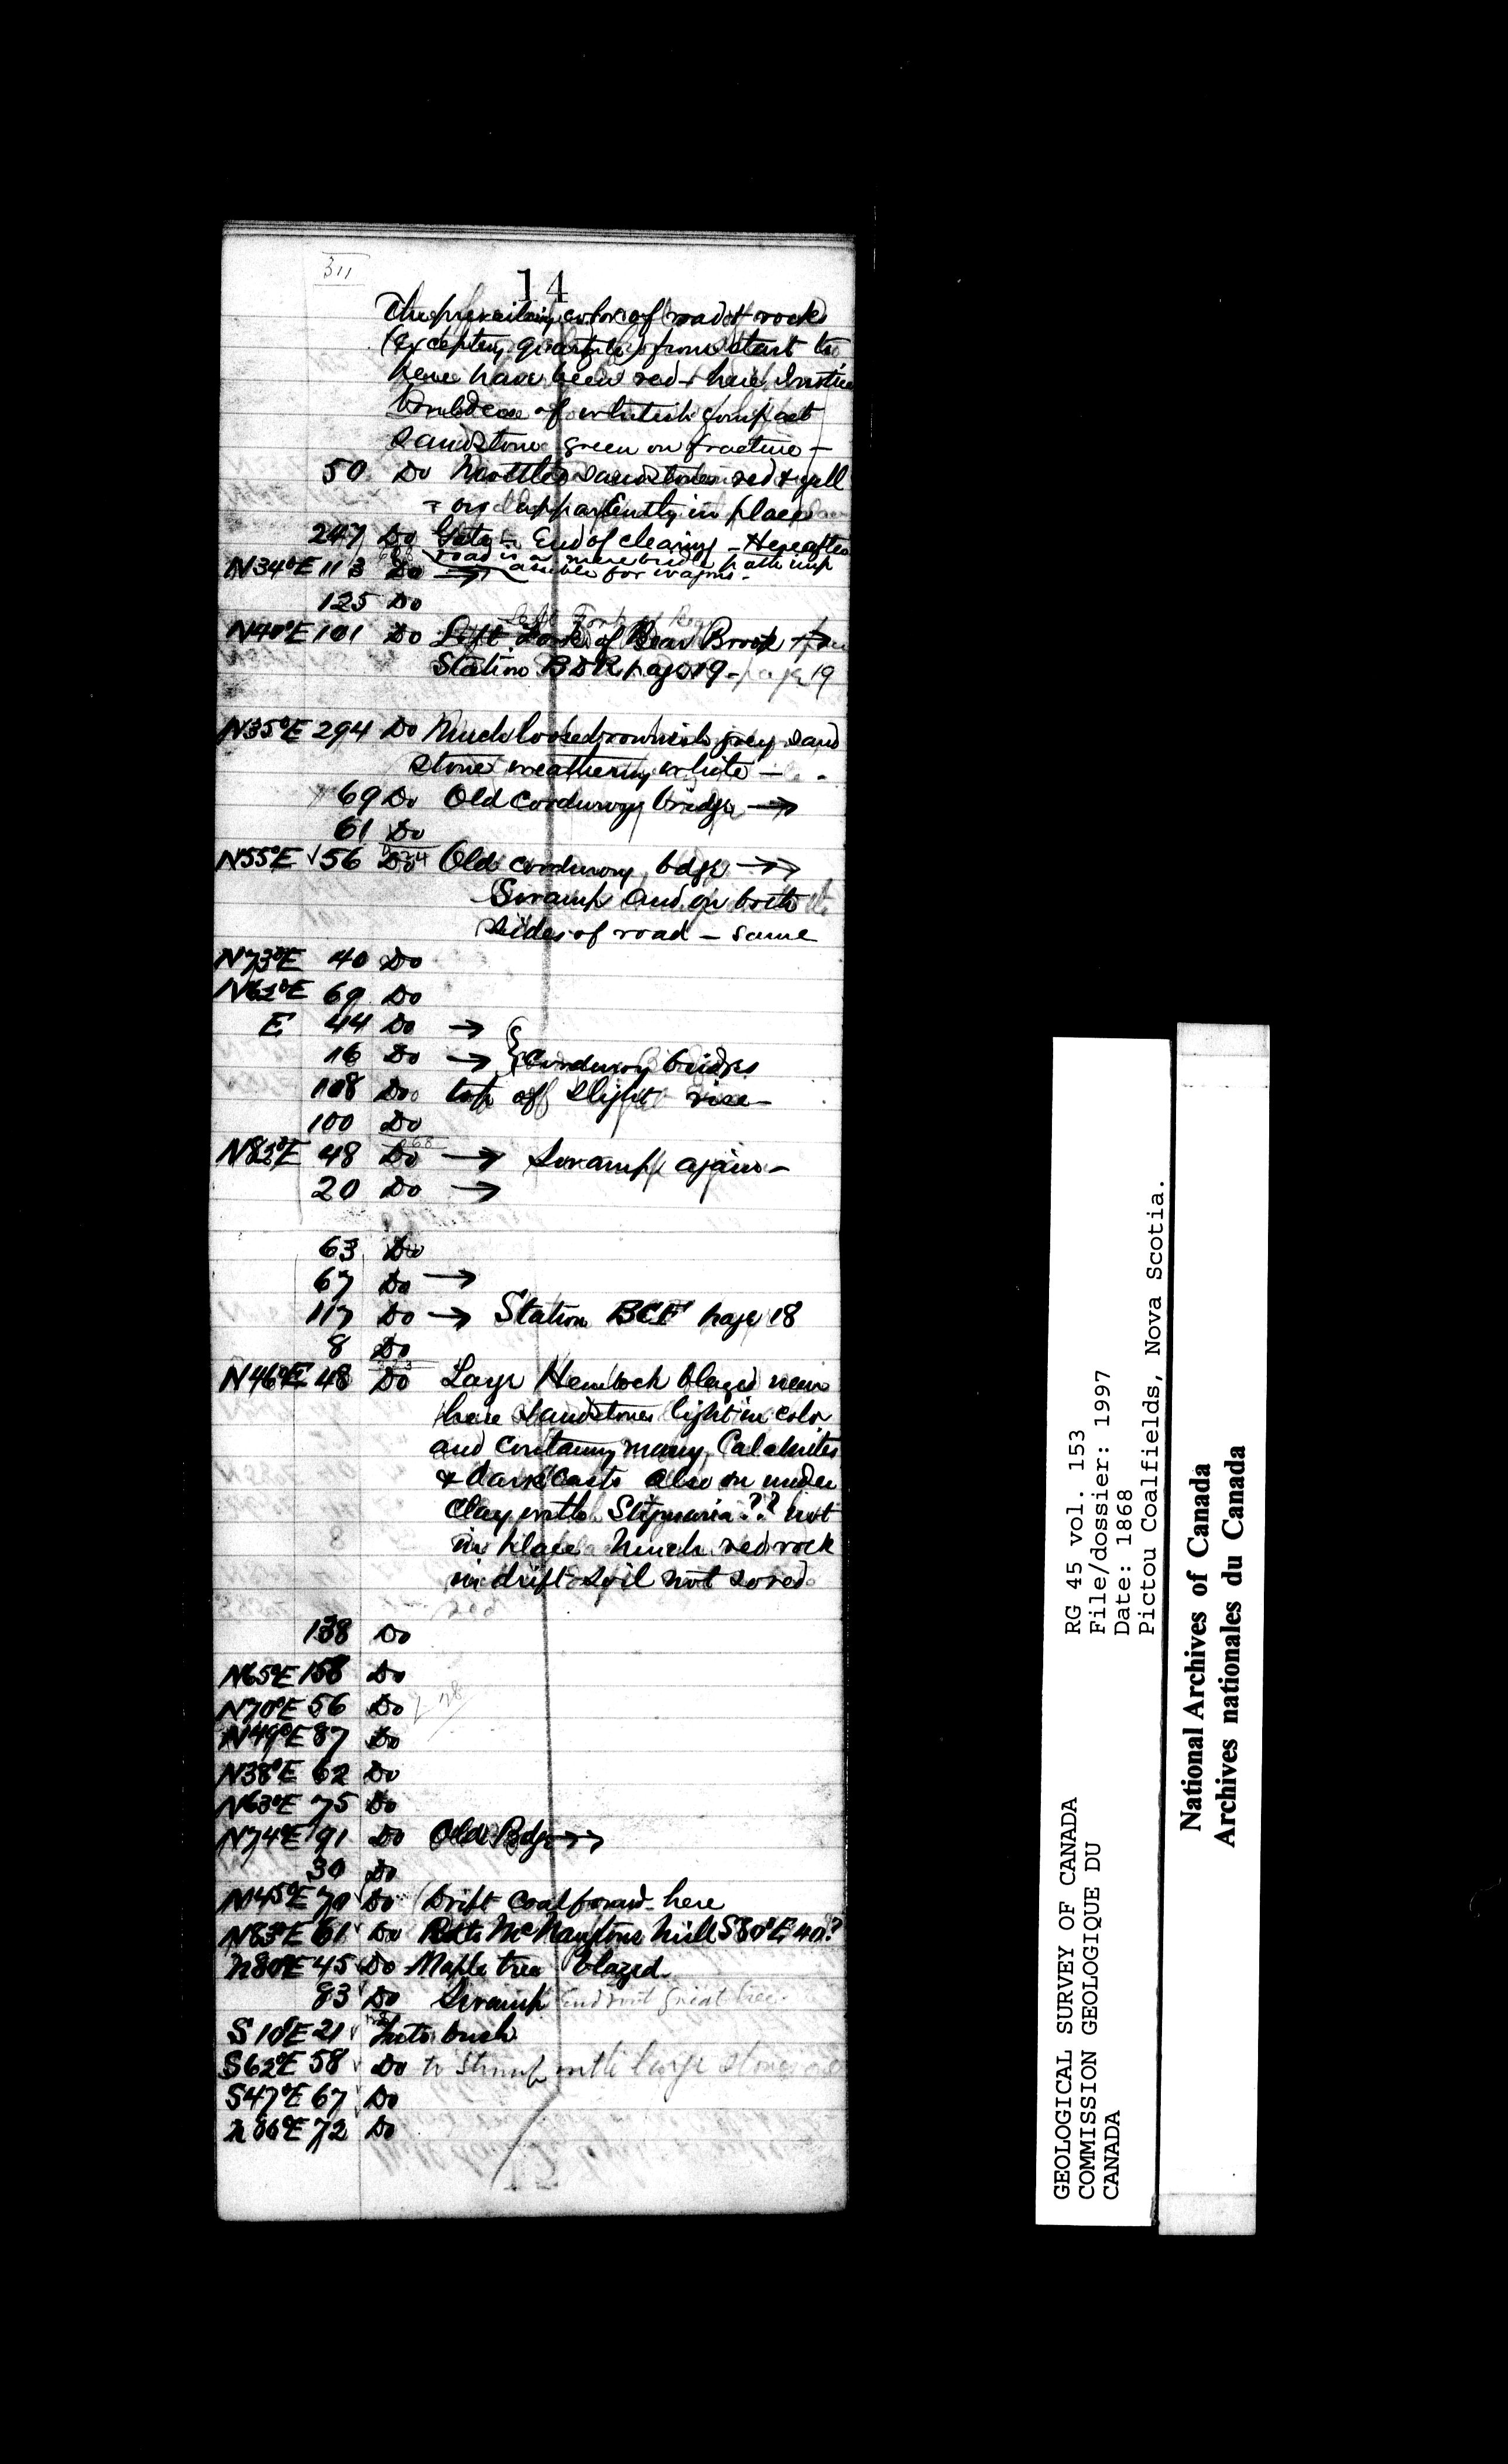 311
14
The prevailing color of road & rocks
(excepting quartzite) from start to
here have been red + here I notice
of whitish compact
sandstone green on fracture -
50 Do Mottled sandstones red & yell
- ow apparently in place
247 Do Gate - End of clearing - Hereafter
road is a mere bridle path imp
N34°E 113 Do → assible for wagons -
125 Do
N40°E 101 Do Left Fork of Bear Brook →
Station BDR page 19 -
N35°E 294 Do Much loose brownish grey sand
stone weathering white -
69 Do Old Corduroy bridge →
61 Do
N55°E √56 Do Old corduroy bdge →
Swamp and on both
sides of road - same
N73°E 40 Do
N62°E 69 Do
E 44 Do →
16 Do → { Corduroy bridges
108 Do top of slight rise -
100 Do
N82°E 48 Do → Swamp again -
20 Do →
63 Do
67 Do →
117 Do → Station BCF page 18
8 Do
N46°E 48 Do Large Hemlock blazed near
here sandstones light in color
and containing many Calamites
& dark casts also an under
clay with Stigmaria?? not
in place Much red rock
in drift soil not so red
138 Do
N65°E 158 Do
N70°E 56 Do
N49°E 87 Do
N38°E 62 Do
N63°E 75 Do
N74°E 91 Do Old Bdge →
30 Do
N45°E 70 Do Drift coal found here
N83°E 61 Do Rd to McNaughtons mill S80°E 40?
N80°E 45 Do Maple tree blazed
83 Do Swamp
S10°E 21 Into bush
S62°E 58 Do to Stump with large stones
S47°E 67 Do
N86°E 72 Do
GEOLOGICAL SURVEY OF CANADA
COMMISSION GEOLOGIQUE DU
CANADA
RG 45 vol. 153
File/dossier: 1997
Date: 1868
Pictou Coalfields, Nova Scotia.
National Archives of Canada
Archives nationales du Canada